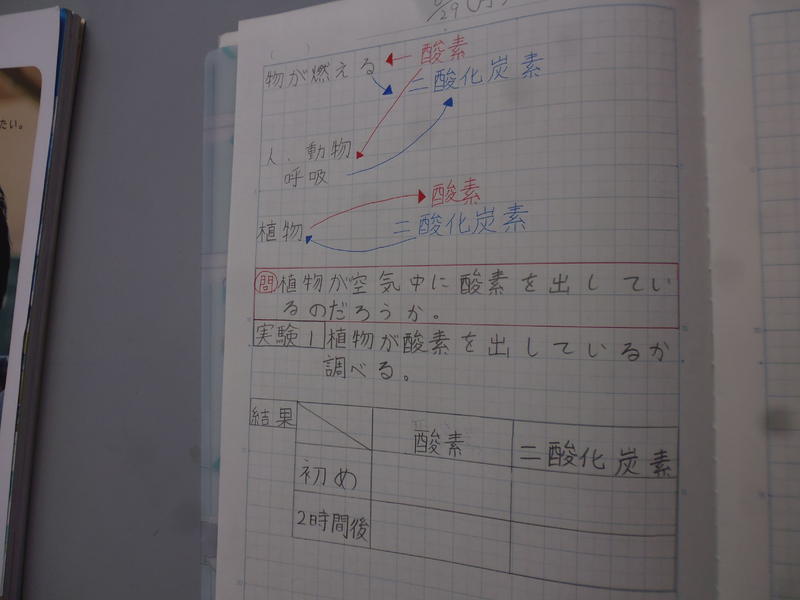 たい。
29(月)
( )
物が燃える
酸素
二酸化炭素
人、動物
呼吸
酸素
植物
二酸化炭素
問 植物が空気中に酸素を出してい
るのだろうか。
実験1 植物が酸素を出しているか
調べる。
結果
酸素 二酸化炭素
初め
2時間後